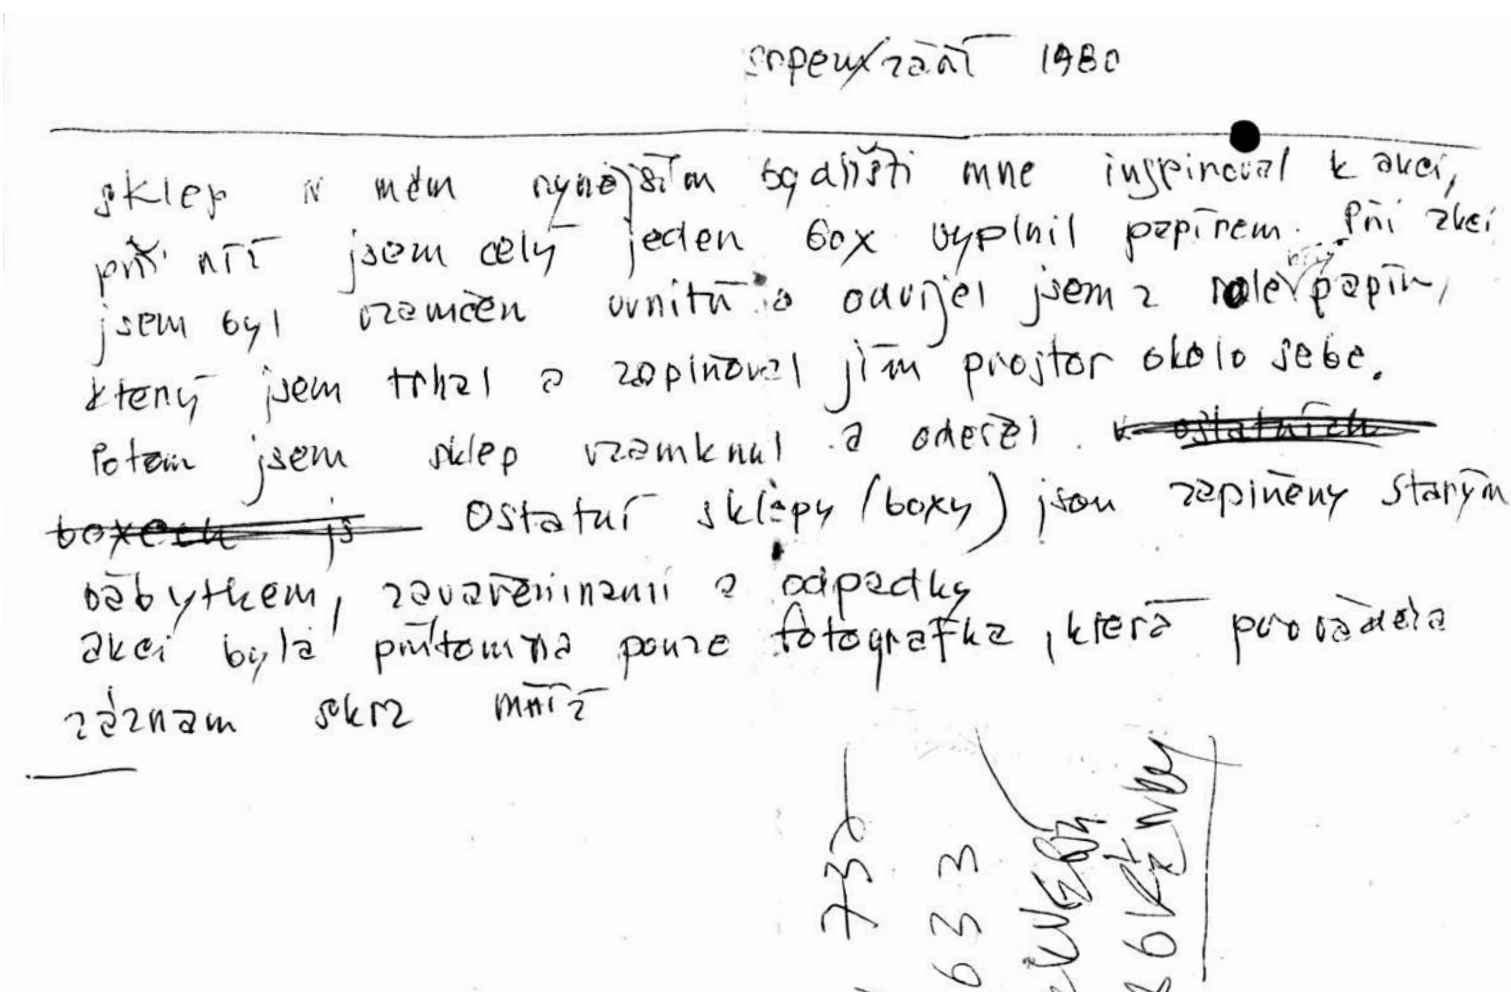 srpen/září 1980
sklep v mém nynějším bydlišti mne inspiroval k akci,
při níž jsem celý jeden box vyplnil papírem. Při akci
jsem byl uzamčen uvnitř a odvíjel jsem z role papír,
který jsem trhal a zaplňoval jím prostor okolo sebe.
Potom jsem sklep uzamknul a odešel. v ostatních
boxech js Ostatní sklepy (boxy) jsou zaplněny starým
nábytkem, zavařeninami a odpadky
akci byla přítomna pouze fotografka, která prováděla
záznam skrz mříž
732
633